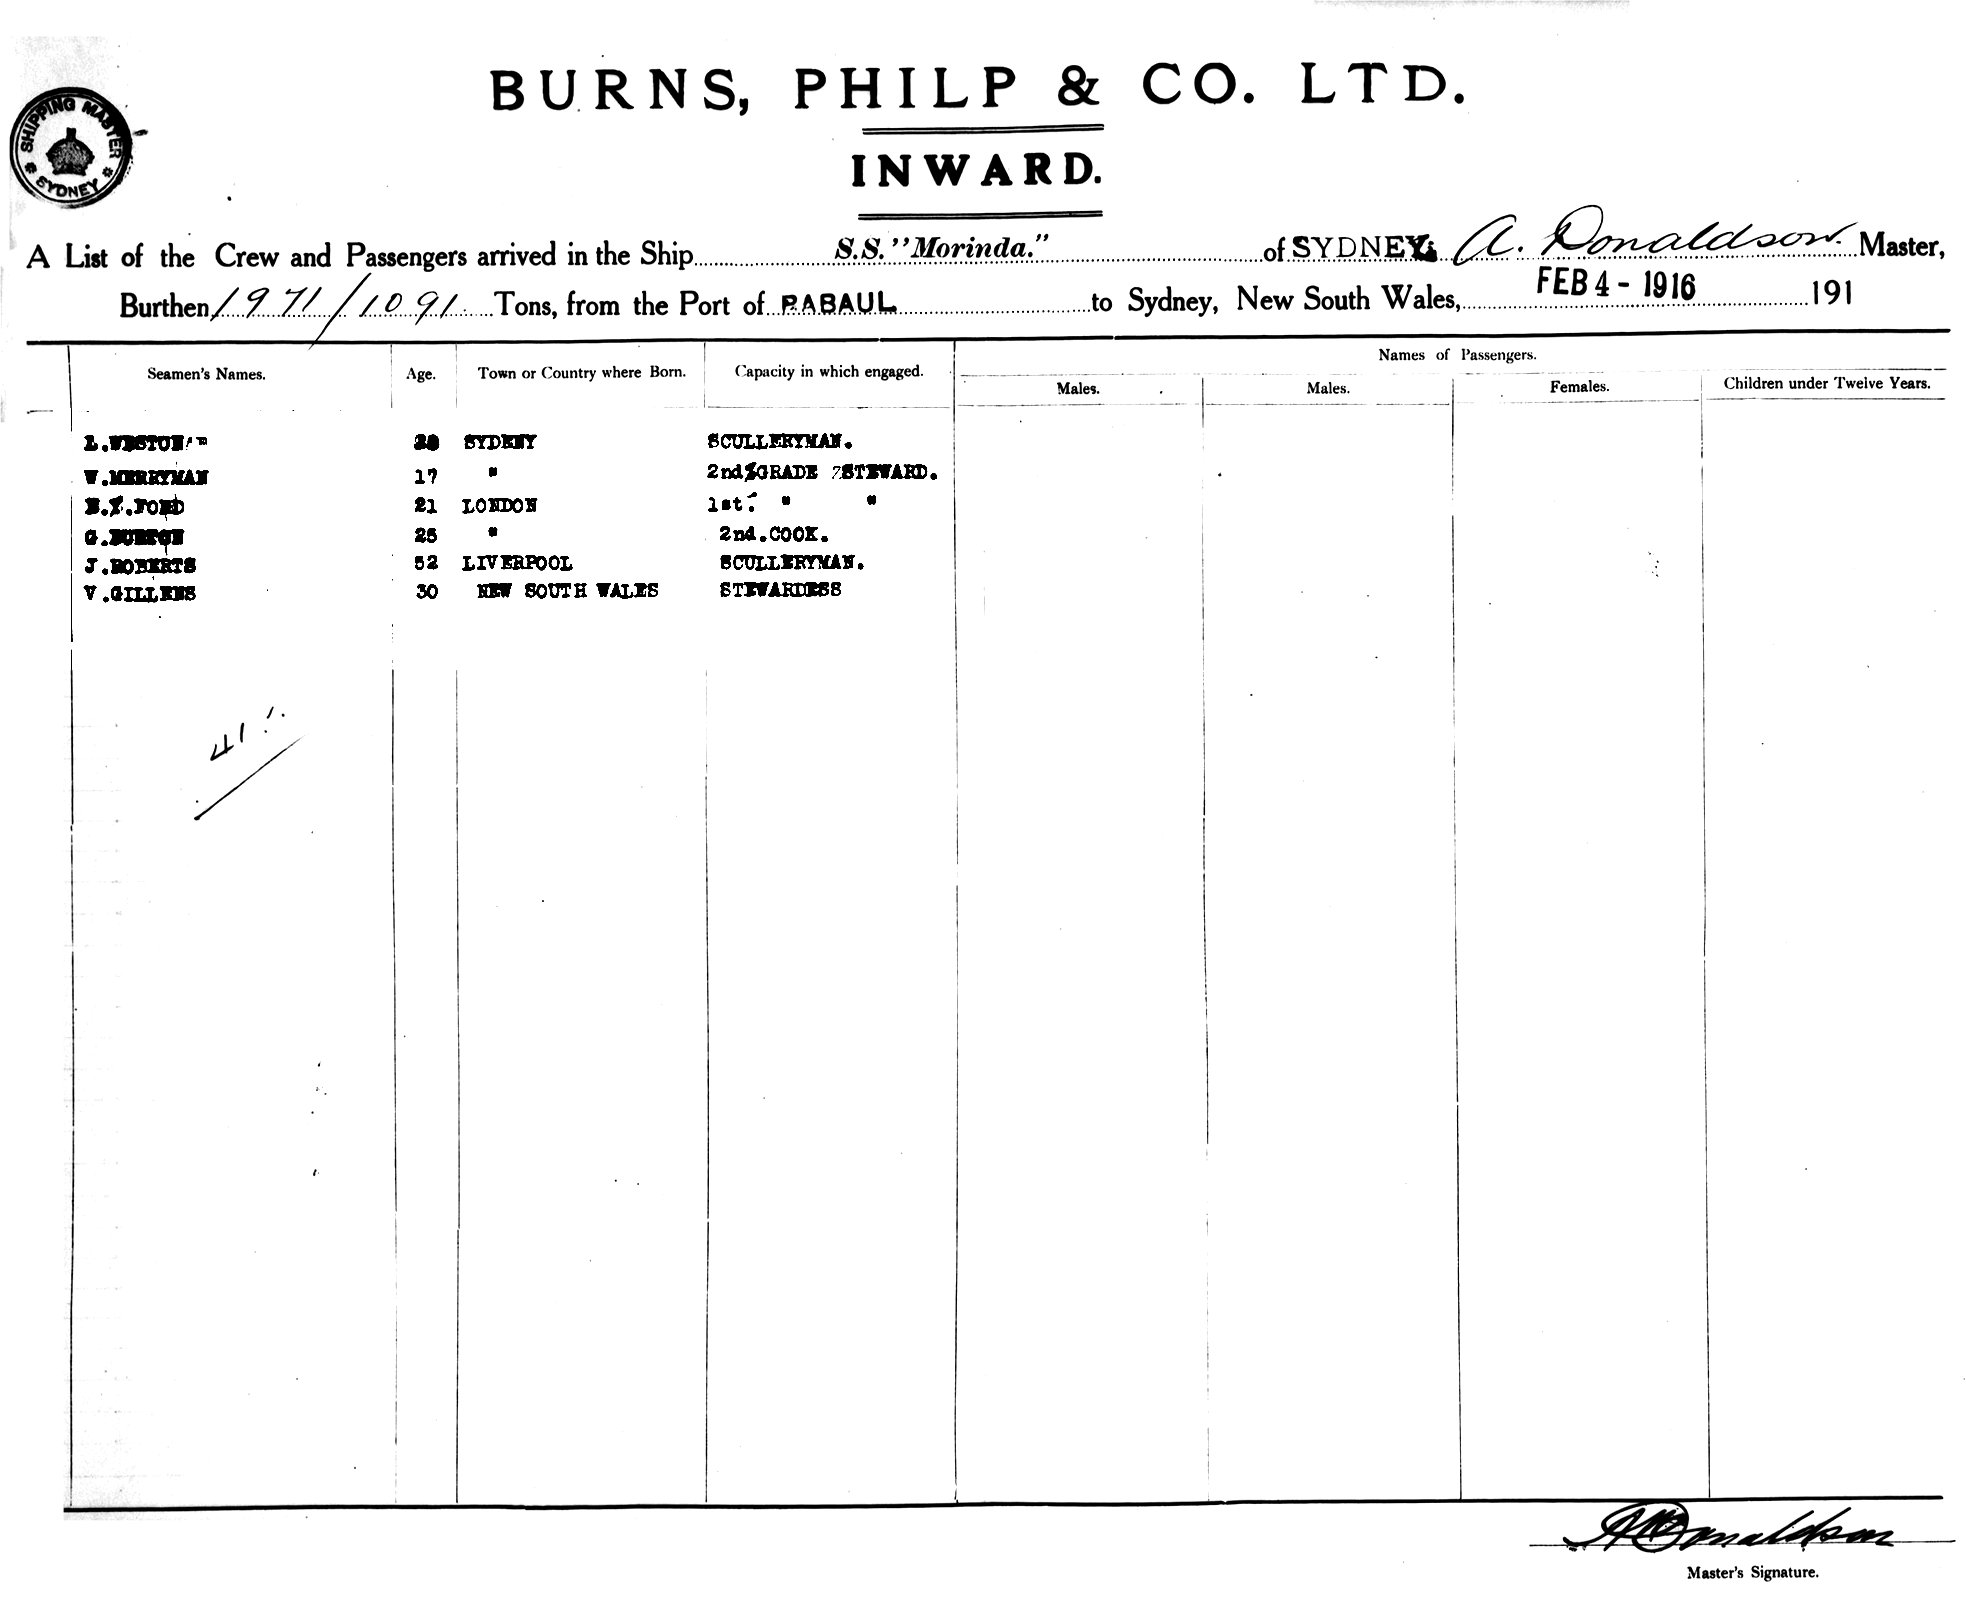 BURNS, PHILP & CO. LTD.
SHIPPING MASTER
SYDNEY
INWARD.
A List of the Crew and Passengers arrived in the Ship S.S. "Morinda." of SYDNEY. A. Donaldson. Master,
Burthen 1971/1091 Tons, from the Port of RABAUL to Sydney, New South Wales, FEB 4 - 1916 191
Names of Passengers.
Seamen's Names. Age. Town or Country where Born. Capacity in which engaged. Males. Males. Females. Children under Twelve Years.
L.WESTON SYDENY SCULLERYMAN.
W.MERRYMAN 17 " 2nd GRADE STEWARD.
FORD 21 LONDON 1st. " "
G.BURTON 25 " 2nd.COOK.
J.ROBERTS 52 LIVERPOOL SCULLERYMAN.
V.GILLENS 30 NEW SOUTH WALES STEWARDESS
41
Donaldson
Master's Signature.